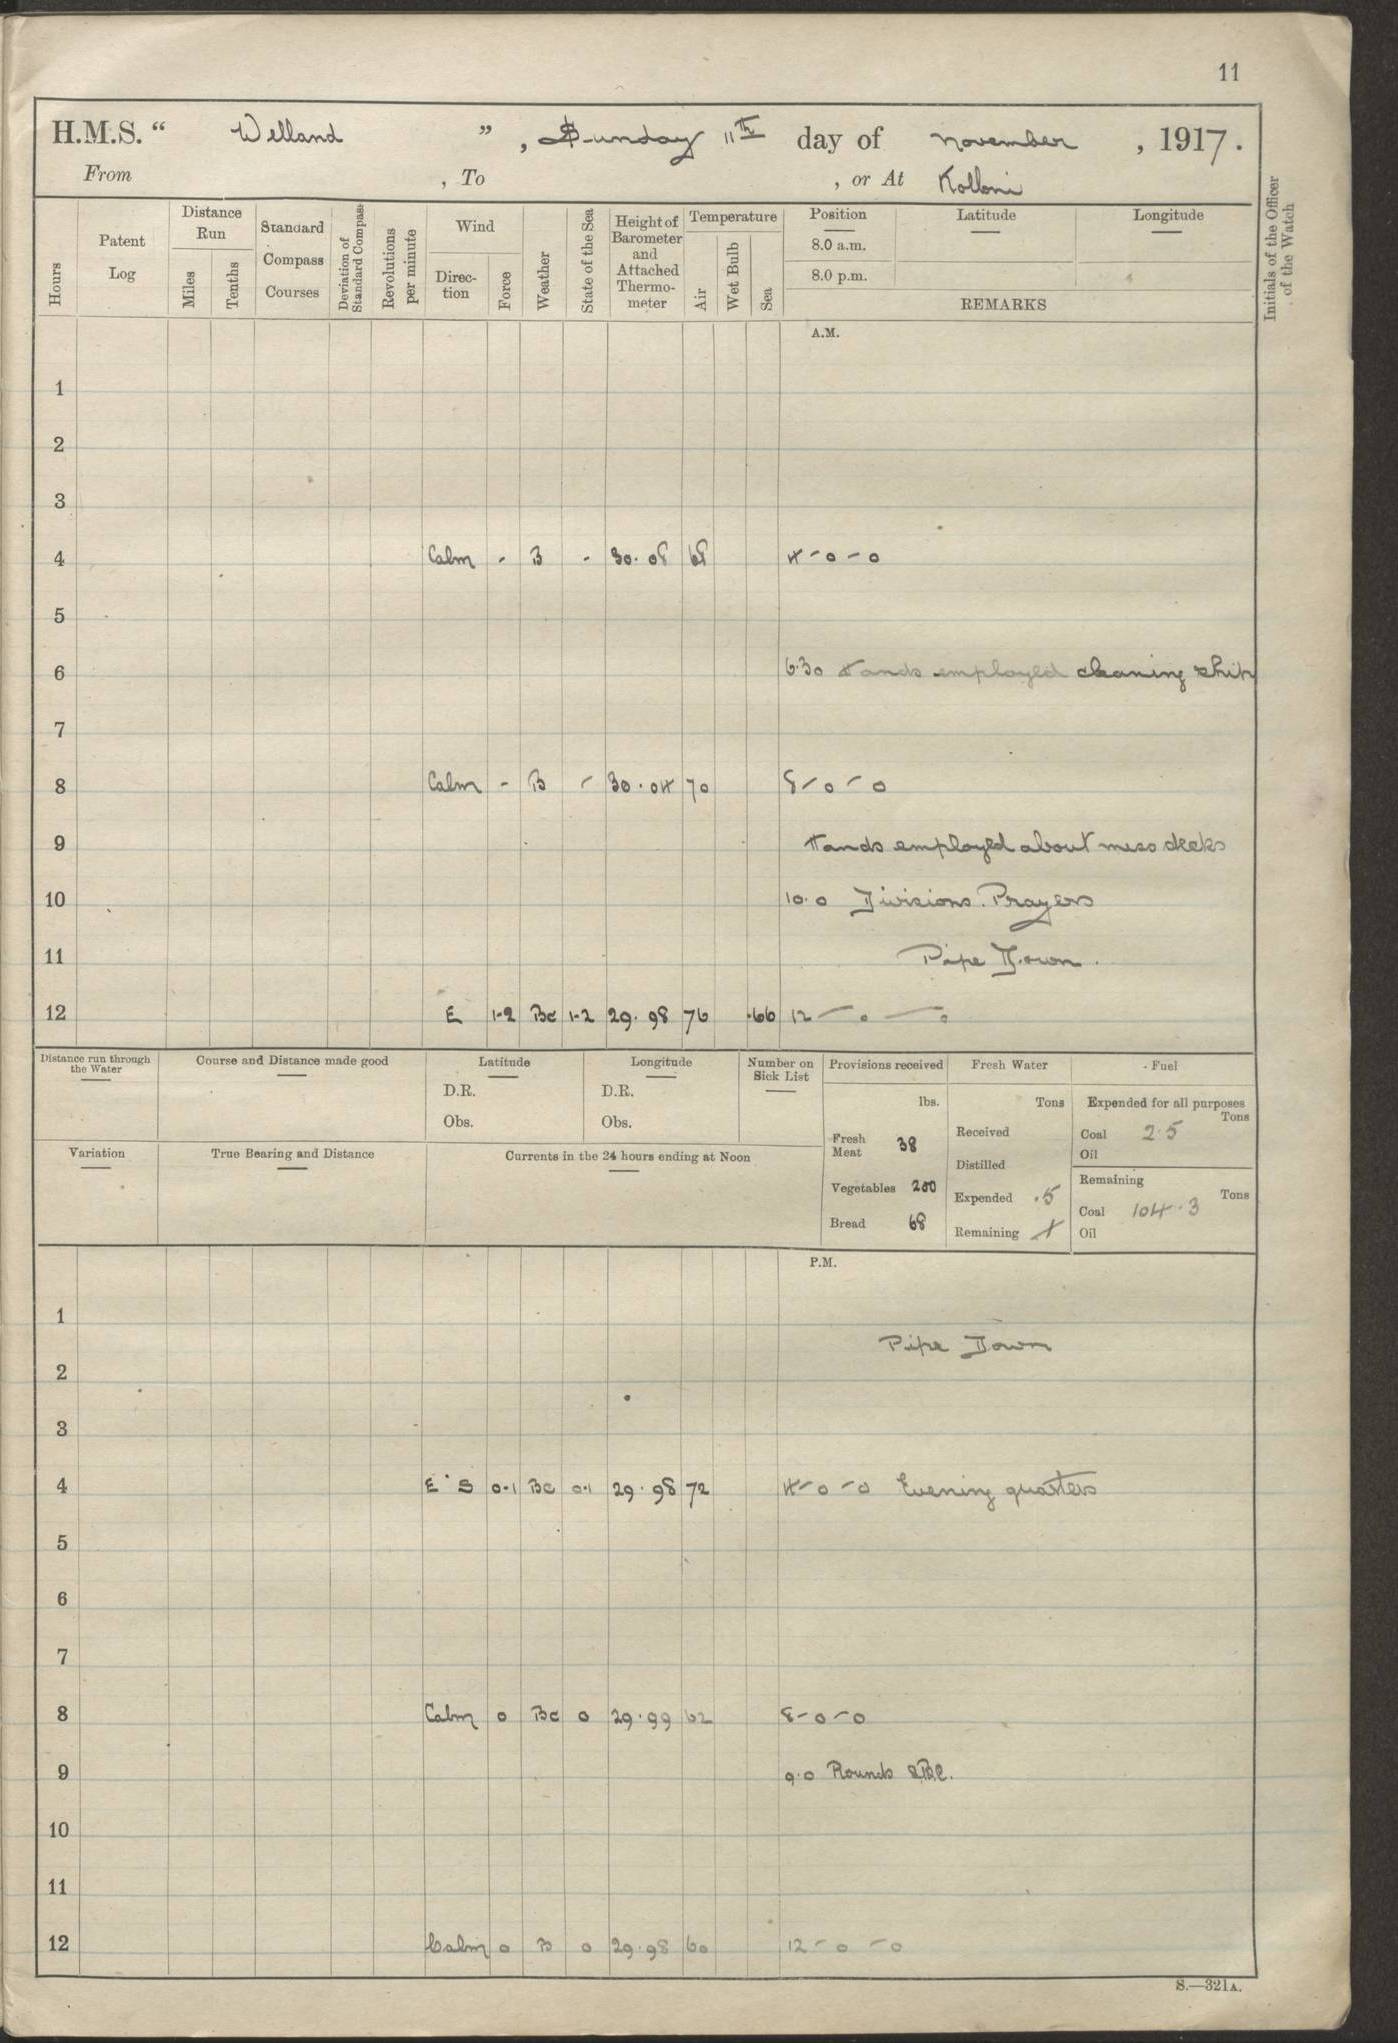 11
H.M.S. “ Welland ” , Sunday 11th day of November , 1917.
From , To , or At Kolloni
Hours
Patent Log
Distance Run
Miles
Tenths
Standard Compass Courses
Deviation of Standard Compass
Revolutions per minute
Wind
Direction
Force
Weather
State of the Sea
Height of Barometer and Attached Thermometer
Temperature
Air
Wet Bulb
Sea
Position
8.0 a.m.
8.0 p.m.
Latitude
Longitude
REMARKS
Initials of the Officer of the Watch
A.M.
1
2
3
4 Calm - B - 30.08 68 4-0-0
5
6 6.30 Hands employed cleaning ship
7
8 Calm - B - 30.04 70 8-0-0
9 Hands employed about mess decks
10 10.0 Divisions. Prayers
11 Pipe Down.
12 E 1-2 Bc 1-2 29.98 76 .66 12-0-0
Distance run through the Water
Course and Distance made good
Latitude
D.R.
Obs.
Longitude
D.R.
Obs.
Number on Sick List
Provisions received
lbs.
Fresh Meat 38
Vegetables 200
Bread 68
Fresh Water
Tons
Received
Distilled
Expended .5
Remaining
Fuel
Expended for all purposes
Tons
Coal 2.5
Oil
Remaining
Tons
Coal 104.3
Oil
Variation
True Bearing and Distance
Currents in the 24 hours ending at Noon
P.M.
1
Pipe Down
2
3
4 E'S 0.1 Bc 0.1 29.98 72 4-0-0 Evening quarters
5
6
7
8 Calm 0 Bc 0 29.99 62 8-0-0
9 9.0 Rounds
10
11
12 Calm 0 B 0 29.98 60 12-0-0
S.—321A.